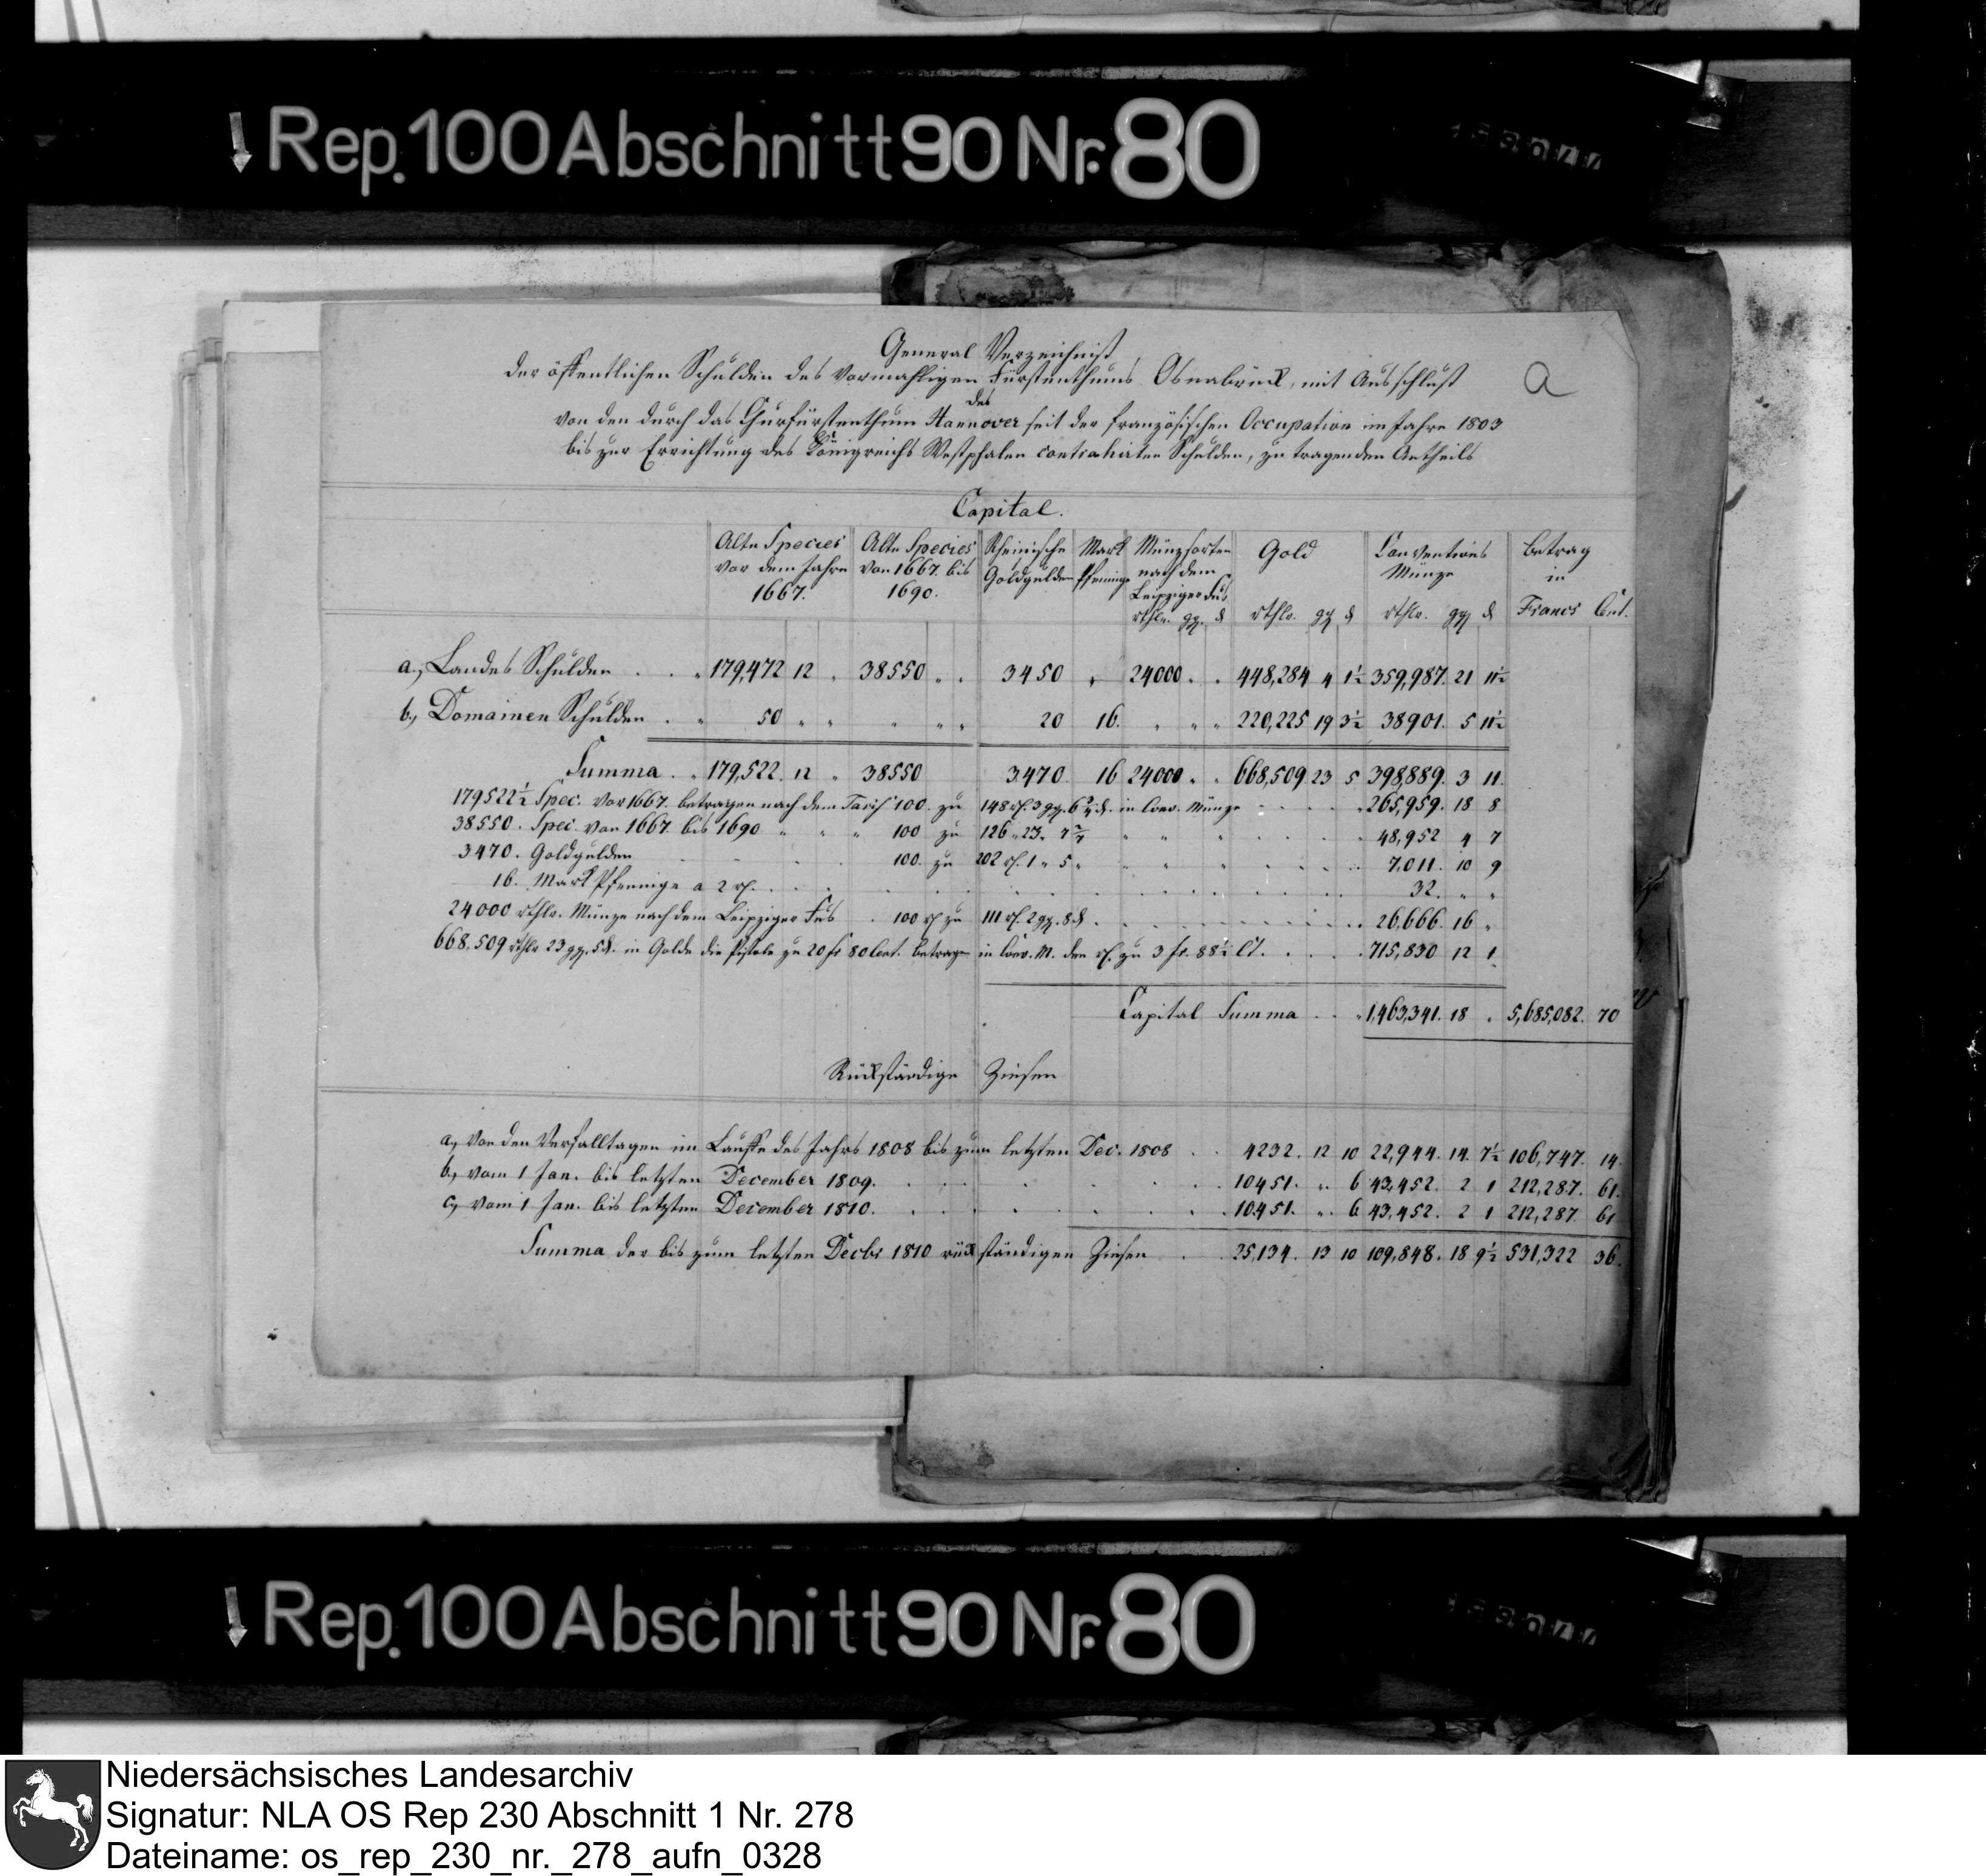 Rep. 100 Abschnitt 90 Nr. 80
General Verzeichniß
der öffentlichen Schulden des vormahligen Fürstenthums Osnabrück, mit Ausschluß
des
von den durch das Churfürstenthum Hannover seit der französischen Occupation im Jahre 1803
bis zur Errichtung des Königreichs Westphalen contrahirten Schulden, zu tragenden Antheils
a
Capital.
Alte Species vor dem Jahre 1667. Alte Species von 1667. bis 1690. Rheinische Goldgulden Mark Pfennige Münzsorten nach dem Leipziger Fus rthlr. ggr. d Gold rthlr. ggr d Conventions Münze rthlr. ggr d Betrag in Francs Cent.
a., Landes Schulden . . " 179,472 12 " 38550 " . 3450 " 24000 " . 448,284 4 1½ 359,987. 21 11½
b., Domainen Schulden . " 50 " " " " " 20 16. " " " 220,225 19 3½ 38901. 5 11½
Summa . " 179,522. 12 " 38550 3470. 16 24000 " . 668,509 23 5 398,889. 3 11.
179522½ Spec. vor 1667. betragen nach dem Tarif 100. zu 148 rl. 3 ggr. 6 d. in Conv. Münze . . . . " 265,959. 18 8
38550. Spec. von 1667 bis 1690 " " " 100 zu 126 " 23 " 7 " " " . . . 48,952 4 7
3470. Goldgulden . . . . 100. zu 202 rl. 1 " 5 " " " " . . . 7,011. 10 9
16. Mark Pfennige a 2 rl. . . . . . . 32. " "
24000 rthlr. Münze nach dem Leipziger Fus . 100 rl zu 111 rl. 2 ggr. 8 d . . . . . 26,666. 16 "
668.509 rthlr 23 ggr. 5 d. in Golde die Pistole zu 20 fr 80 Cent. betragen in Conv. M. den rl. zu 3 fr. 88½ Ct. . . . . 715,830 12 1
Capital Summa . . " 1,463,341. 18 " 5,685,082. 70
Rückständige Zinsen
a, von den Verfalltagen im Lauffe des Jahrs 1808 bis zum letzten Dec. 1808 . . 4232. 12 10 22,944. 14. 7½ 106,747. 14.
b, vom 1 Jan. bis letzten December 1809. . . . . . . 10451. " 6 43,452. 2 1 212,287. 61.
c, vom 1 Jan. bis letzten December 1810. . . . . . . 10451. " 6 43,452. 2 1 212,287. 61
Summa der bis zum letzten Decbr 1810 rückständigen Zinsen . . 25,134. 13 10 109,848. 18 9½ 531,322 36.
Rep. 100 Abschnitt 90 Nr. 80
Niedersächsisches Landesarchiv
Signatur: NLA OS Rep 230 Abschnitt 1 Nr. 278
Dateiname: os_rep_230_nr._278_aufn_0328